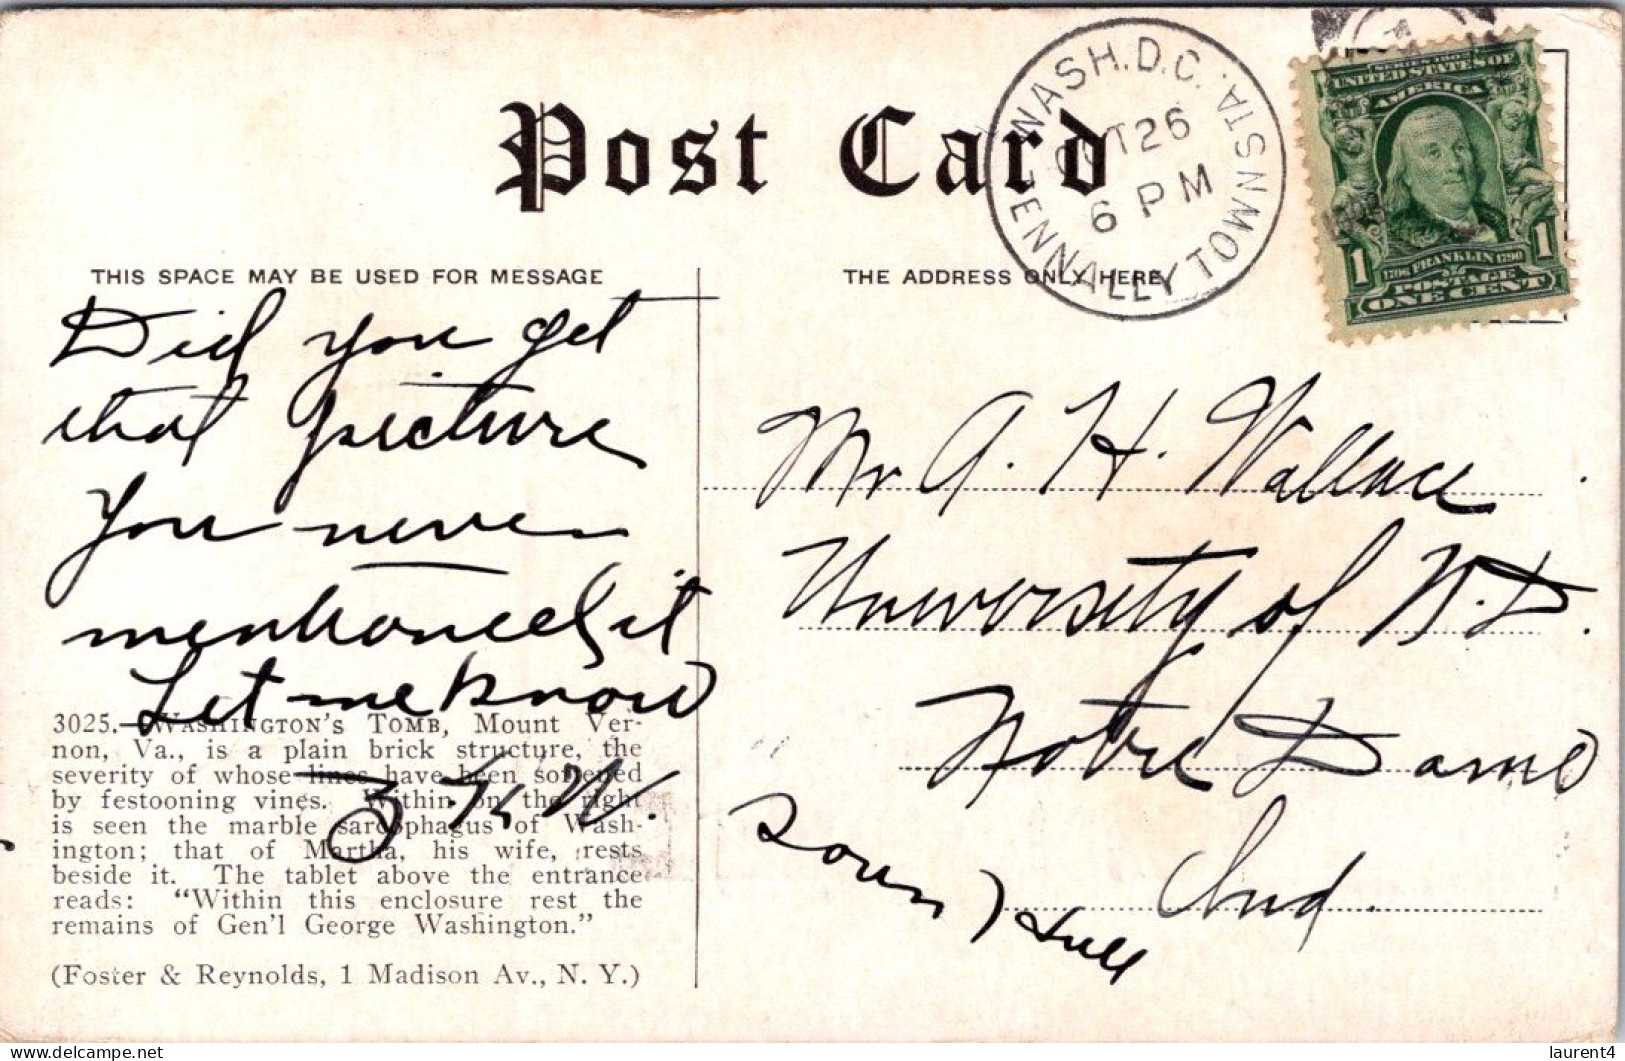 Post Card
WASH. D.C.
OCT 26
6 PM
TENNALLYTOWN STA.
SERIES 1902
UNITED STATES OF
AMERICA
1706 FRANKLIN 1790
POSTAGE
1 1
ONE CENT
THIS SPACE MAY BE USED FOR MESSAGE
Did you get
that picture
You never
mentioned it
Let me know
K W.
3025.—WASHINGTON'S TOMB, Mount Ver-
non, Va., is a plain brick structure, the
severity of whose lines have been softened
by festooning vines. Within on the right
is seen the marble sarcophagus of Wash-
ington; that of Martha, his wife, rests
beside it. The tablet above the entrance
reads: "Within this enclosure rest the
remains of Gen'l George Washington."
(Foster & Reynolds, 1 Madison Av., N. Y.)
THE ADDRESS ONLY HERE
Mr A. H. Wallace
University of N. D.
Notre Dame
Ind.
Sorin Hall
delcampe.net
laurent4